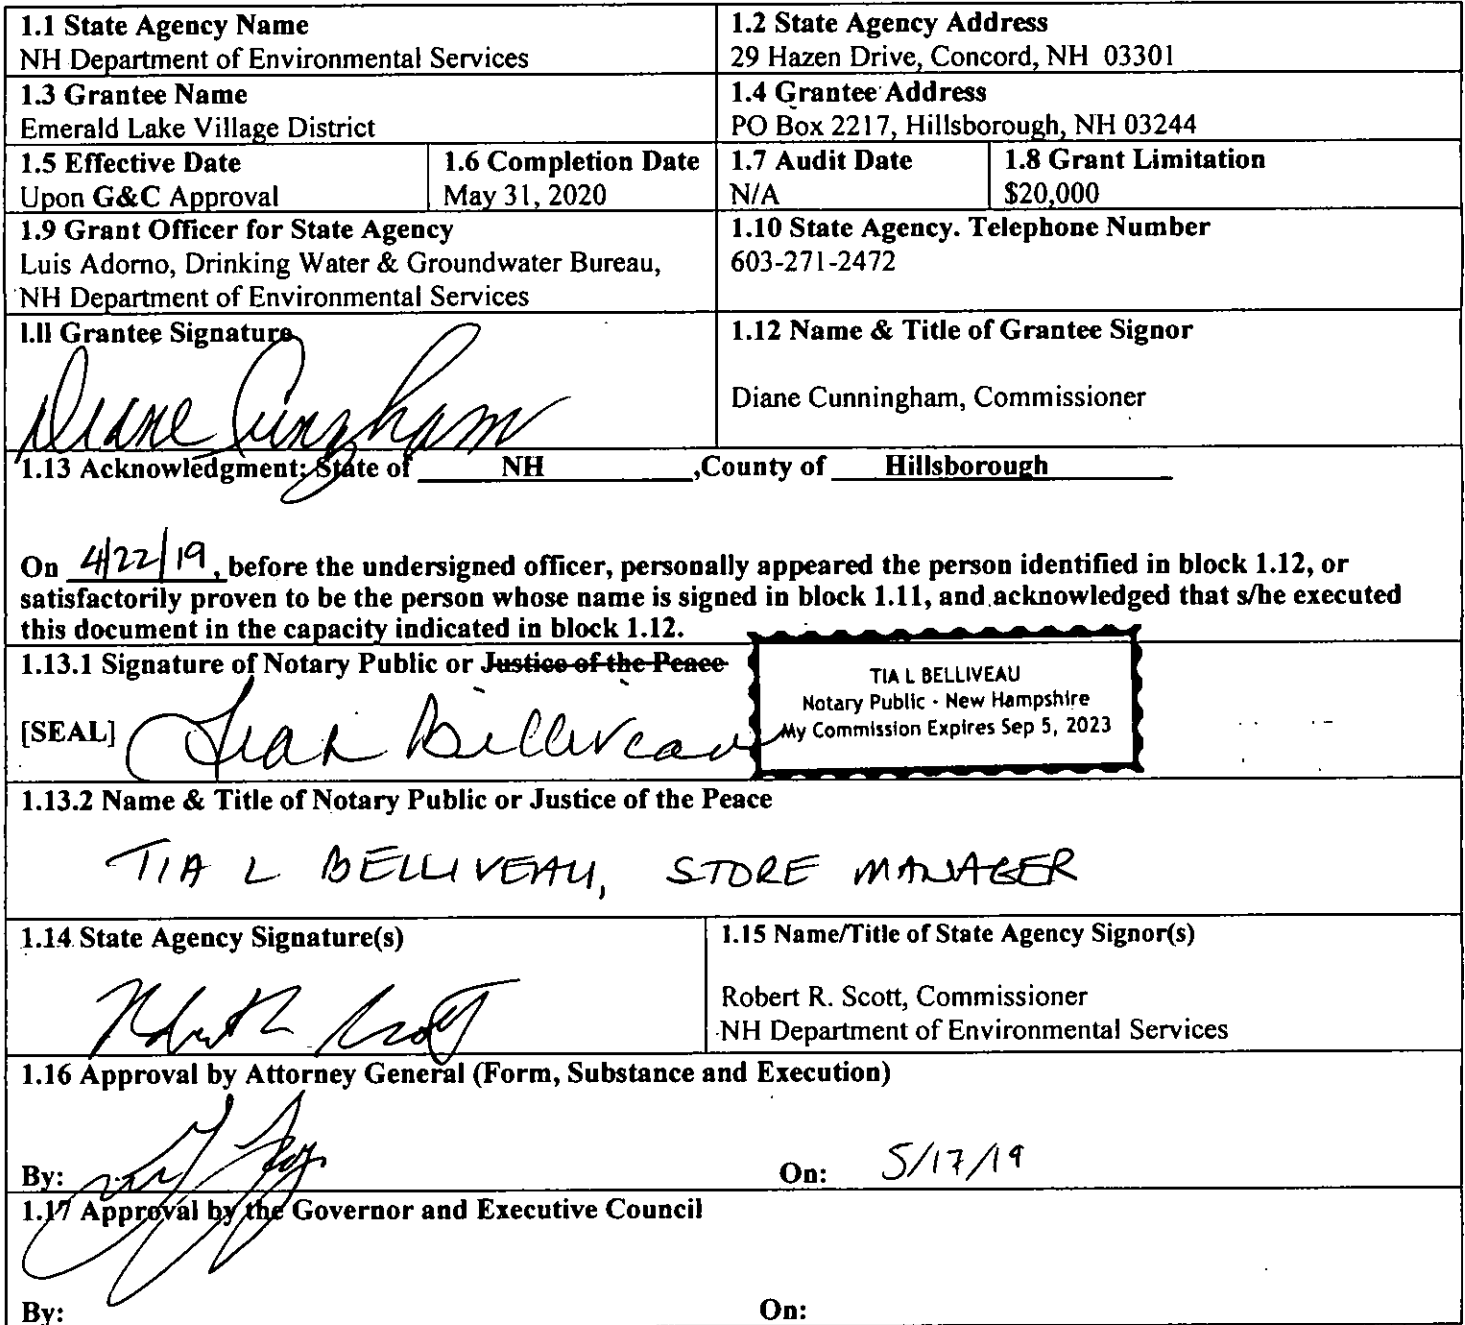 1.1 State Agency Name
NH Department of Environmental Services
1.2 State Agency Address
29 Hazen Drive, Concord, NH 03301
1.3 Grantee Name
Emerald Lake Village District
1.4 Grantee Address
PO Box 2217, Hillsborough, NH 03244
1.5 Effective Date
Upon G&C Approval
1.6 Completion Date
May 31, 2020
1.7 Audit Date
N/A
1.8 Grant Limitation
$20,000
1.9 Grant Officer for State Agency
Luis Adorno, Drinking Water & Groundwater Bureau,
NH Department of Environmental Services
1.10 State Agency. Telephone Number
603-271-2472
1.11 Grantee Signature
Diane Cunningham
1.12 Name & Title of Grantee Signor
Diane Cunningham, Commissioner
1.13 Acknowledgment: State of NH ,County of Hillsborough
On 4/22/19, before the undersigned officer, personally appeared the person identified in block 1.12, or
satisfactorily proven to be the person whose name is signed in block 1.11, and acknowledged that s/he executed
this document in the capacity indicated in block 1.12.
1.13.1 Signature of Notary Public or Justice of the Peace
[SEAL] Belliveau
TIA L BELLIVEAU
Notary Public - New Hampshire
My Commission Expires Sep 5, 2023
1.13.2 Name & Title of Notary Public or Justice of the Peace
TIA L BELLIVEAU, STORE MANAGER
1.14 State Agency Signature(s)
1.15 Name/Title of State Agency Signor(s)
Robert R. Scott, Commissioner
NH Department of Environmental Services
1.16 Approval by Attorney General (Form, Substance and Execution)
By: On: 5/17/19
1.17 Approval by the Governor and Executive Council
By: On: